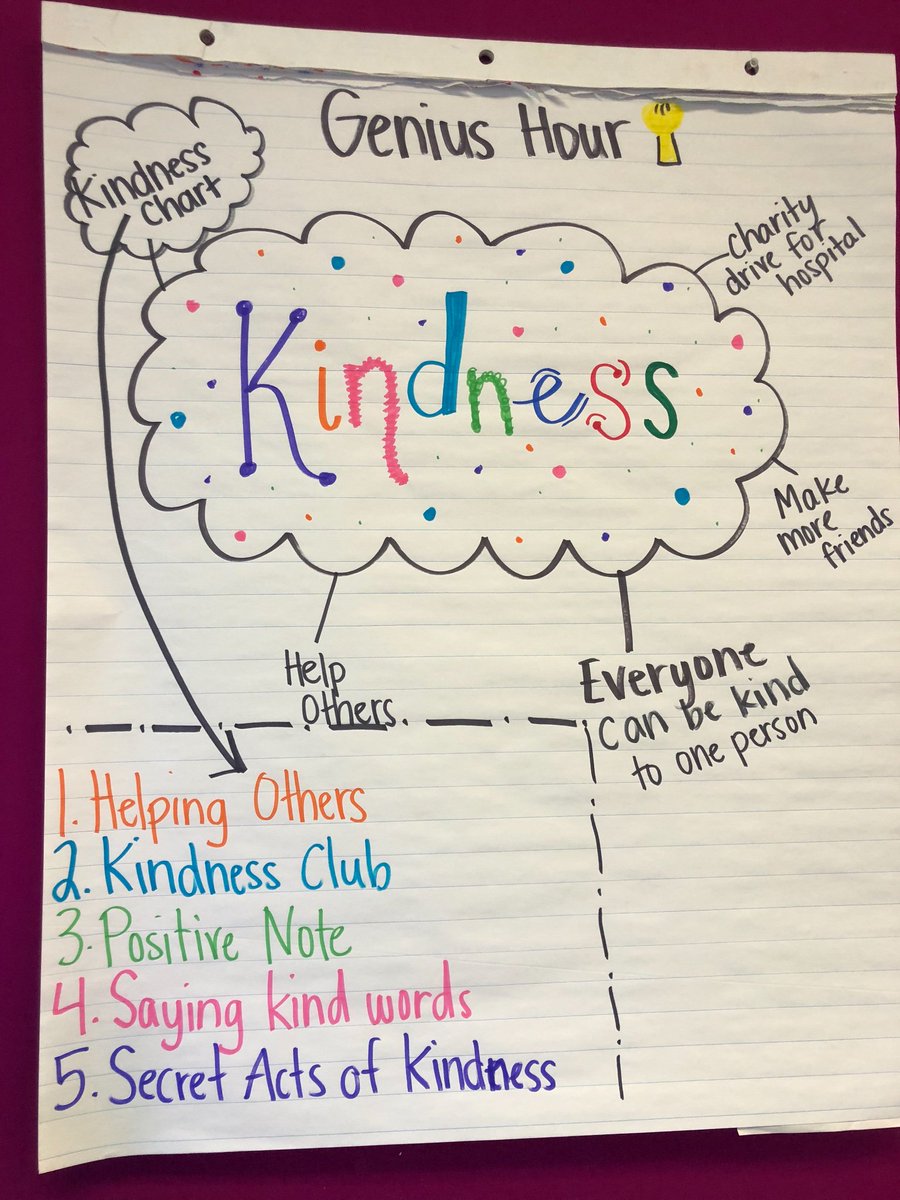 Genius Hour
Kindness
Chart
Kindness
Charity
drive for
hospital
Make
more
friends
Help
Others
Everyone
can be kind
to one person
1. Helping Others
2. Kindness Club
3. Positive Note
4. Saying kind words
5. Secret Acts of Kindness